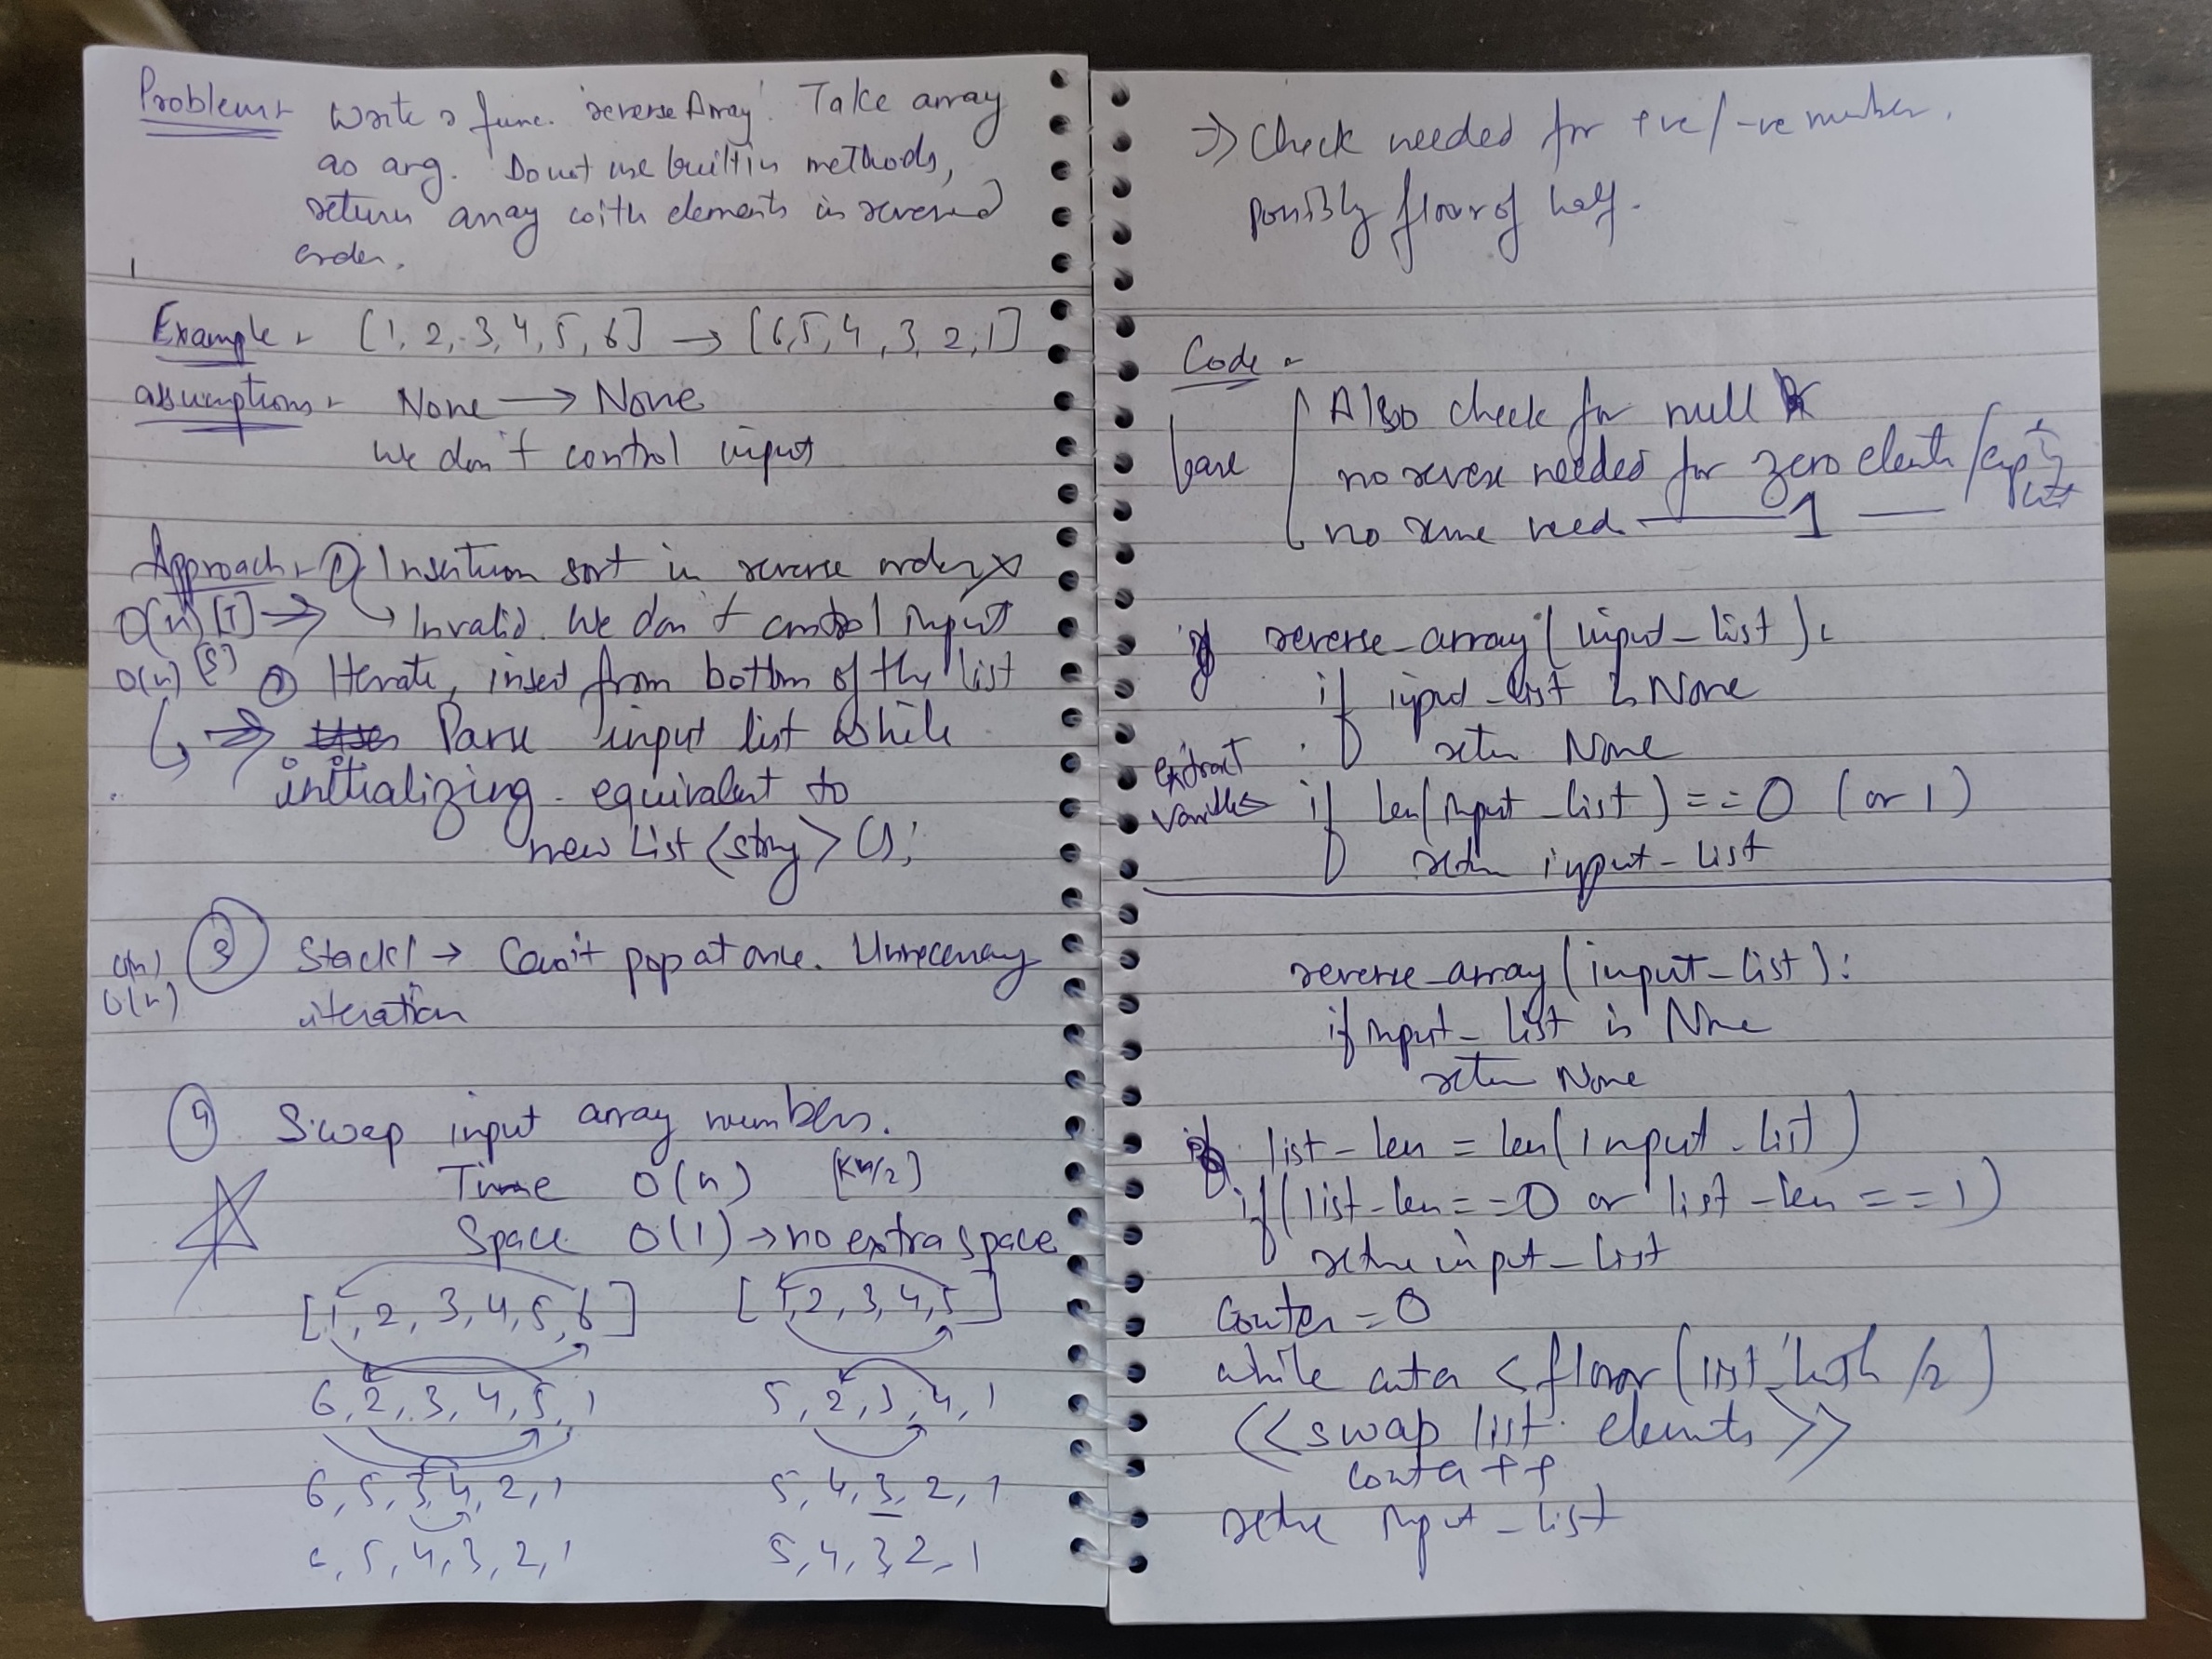 Problem:- Write a func. 'reverse Array'. Take array
as arg. Do not use builtin methods,
return array with elements in reversed
order.
Example:- [1, 2, 3, 4, 5, 6] → [6, 5, 4, 3, 2, 1]
assumptions:- None → None
We don't control input
Approach:- ① Insertion sort in reverse order ×
O(n) [T] → Invalid. We don't control input
O(n) [S] ② Iterate, insert from bottom of the list
⇒ Parse input list while
initializing - equivalent to
new List<string>();
O(n)
O(n)
③ Stack! → Can't pop at once. Unnecessary
iteration
④ Swap input array numbers.
Time O(n) [Kn/2]
Space O(1) → no extra space
[1, 2, 3, 4, 5, 6] [1, 2, 3, 4, 5]
6, 2, 3, 4, 5, 1 5, 2, 3, 4, 1
6, 5, 3, 4, 2, 1 5, 4, 3, 2, 1
6, 5, 4, 3, 2, 1 5, 4, 3, 2, 1
⇒ Check needed for +ve/-ve number.
possibly floor of half.
Code:-
base
Also check for null
no reverse needed for zero elements / empty list
no reverse need —— 1 ——
reverse_array(input_list):
if input_list is None
return None
extract
variables
if len(input_list) == 0 (or 1)
return input_list
reverse_array(input_list):
if input_list is None
return None
list_len = len(input_list)
if (list_len == 0 or list_len == 1)
return input_list
Counter = 0
while counter < floor(list_length/2)
<<swap list elements>>
counter++
return input_list